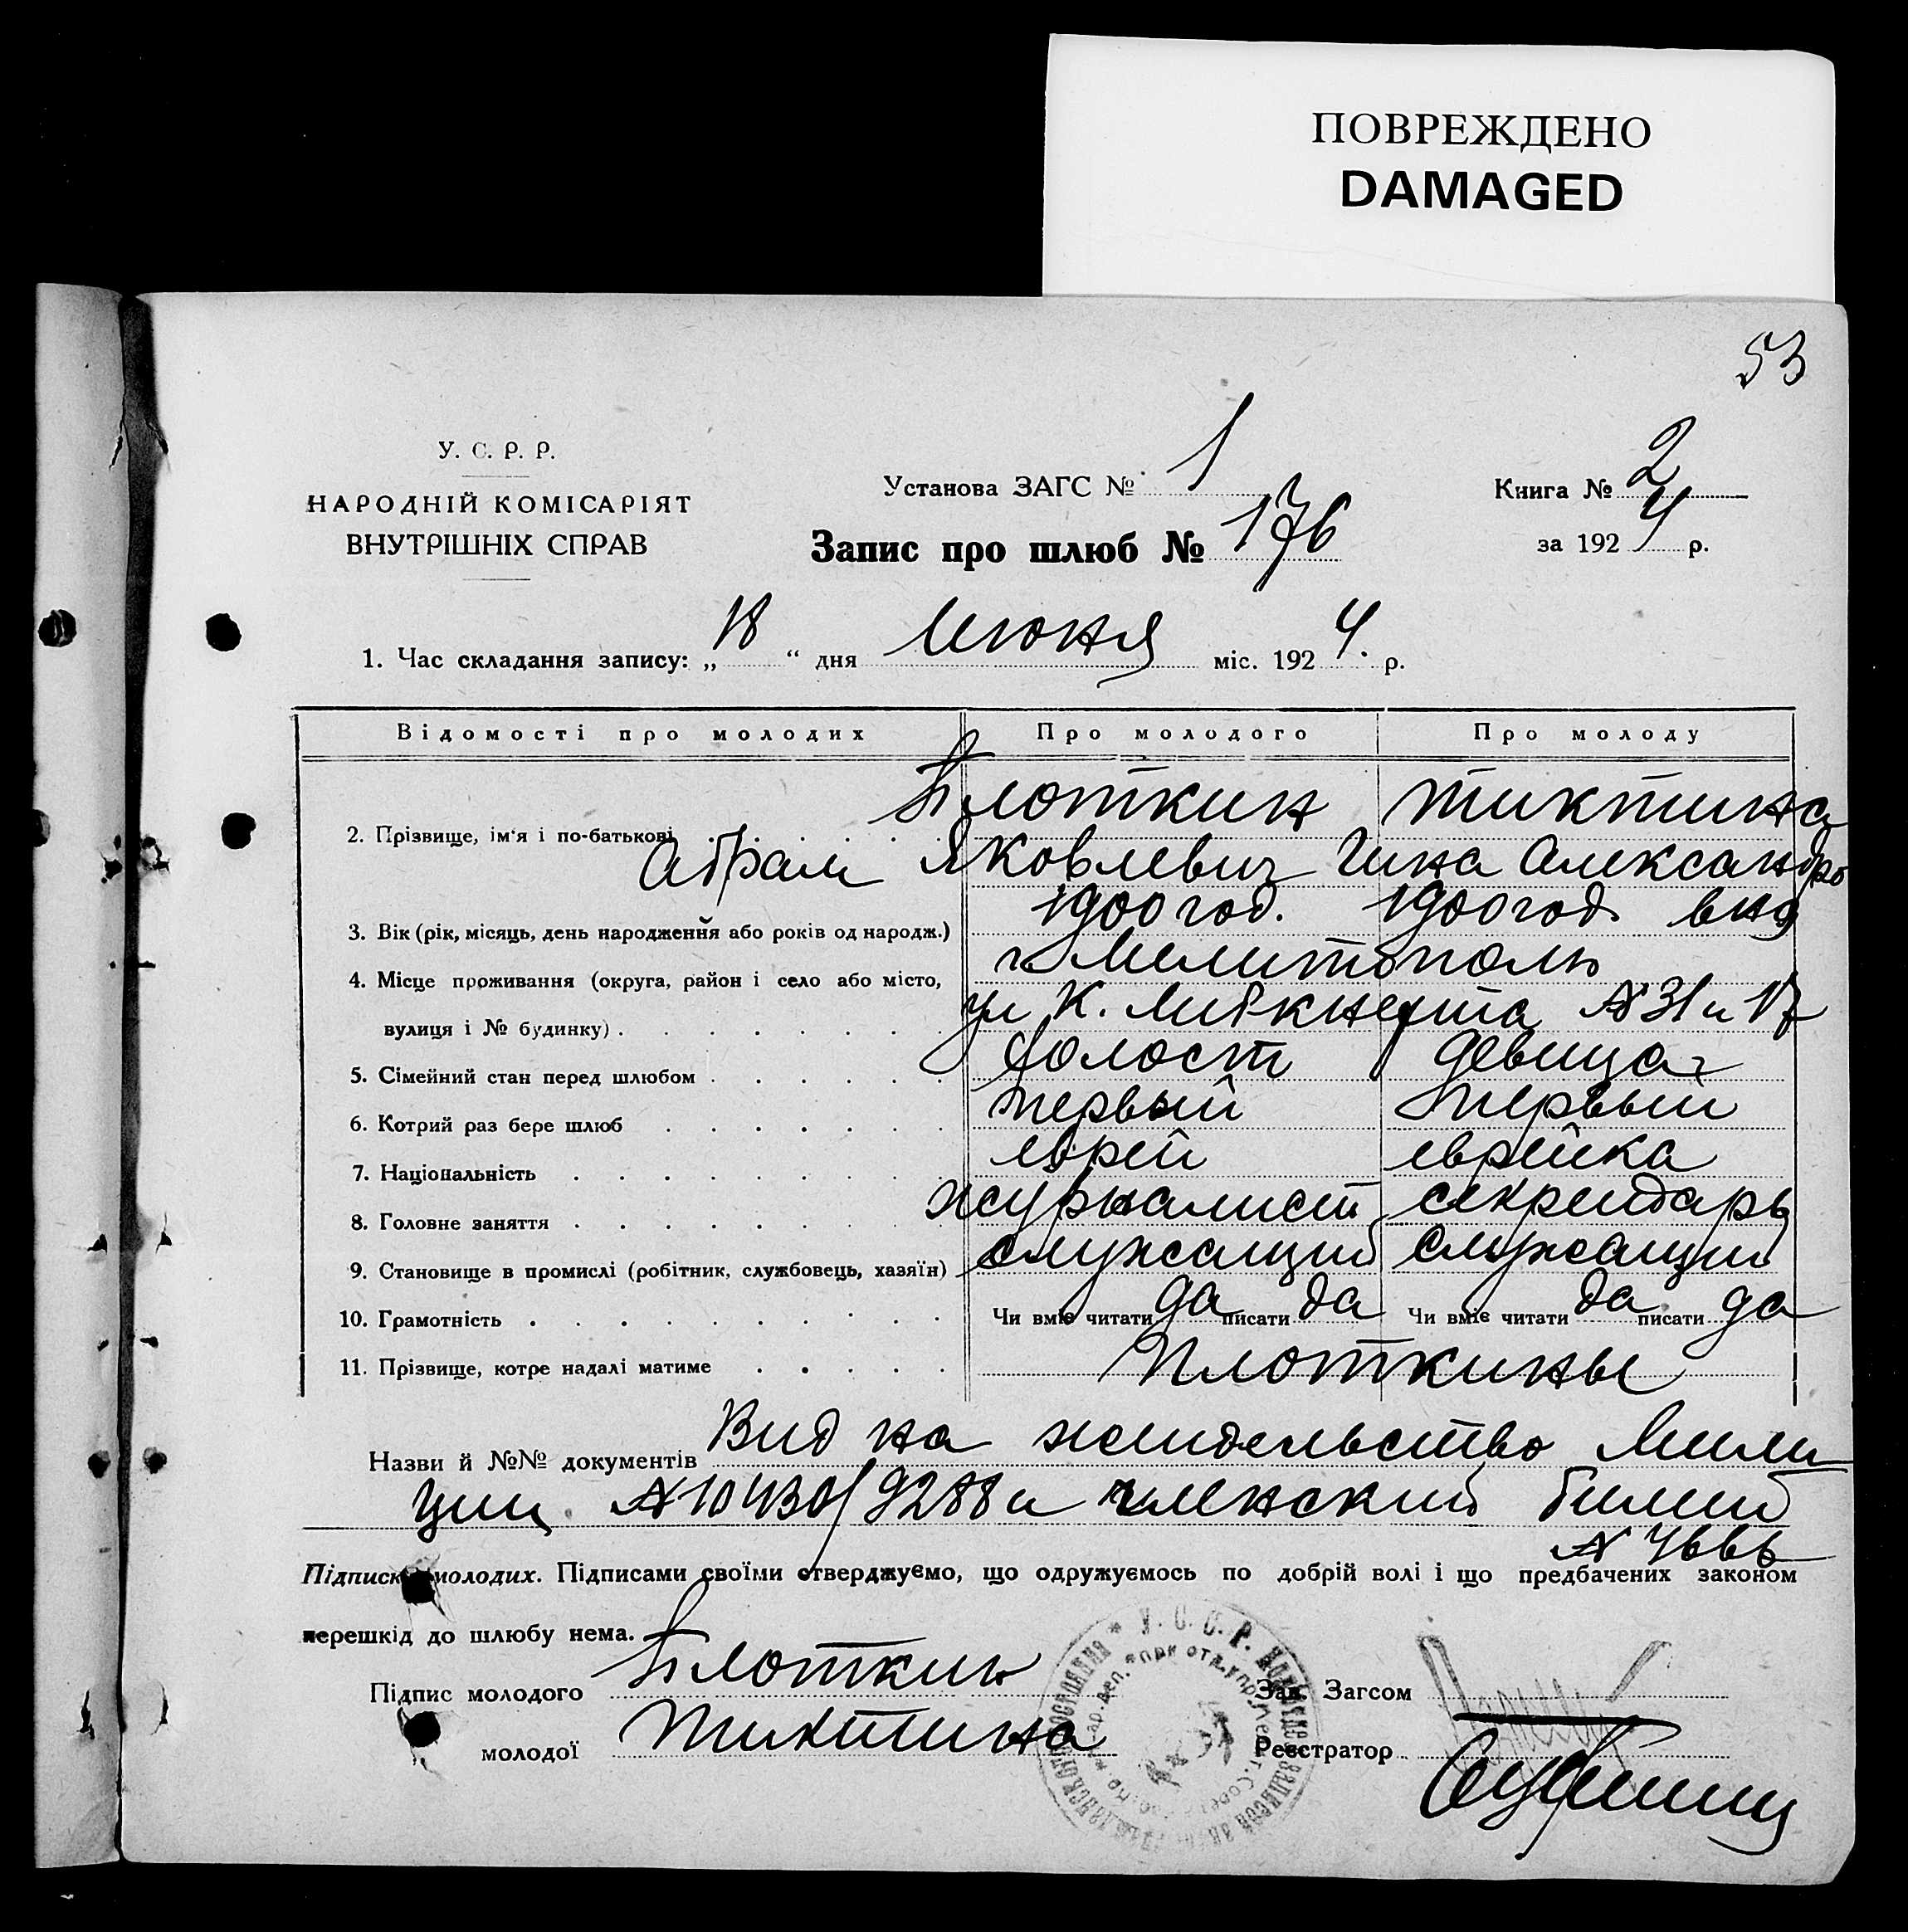 ПОВРЕЖДЕНО
DAMAGED
53
У. С. Р. Р.
НАРОДНІЙ КОМІСАРІЯТ
ВНУТРІШНІХ СПРАВ
Установа ЗАГС № 1
Запис про шлюб № 176
Книга № 2
за 1924 р.
1. Час складання запису: „18“ дня Июня міс. 1924. р.
Відомості про молодих Про молодого Про молоду
Плоткин Тиктина
2. Прізвище, ім'я і по-батькові
Абрам Яковлевич Гина Александро
3. Вік (рік, місяць, день народження або років од народж.) 1900 год. 1900 год. вна
4. Місце проживання (округа, район і село або місто, г. Мелитополь
вулиця і № будинку) ул К. Либкнехта № 31 и 17
5. Сімейний стан перед шлюбом холост девица
6. Котрий раз бере шлюб первый первый
7. Національність еврей еврейка
8. Головне заняття журналист секретарь
9. Становище в промислі (робітник, службовець, хазяїн) служащий служащий
10. Грамотність Чи вміє читати да писати да Чи вміє читати да писати да
11. Прізвище, котре надалі матиме Плоткины
Назви й №№ документів Вид на жительство Мили
ции № 10430/9288 и членский билет
№ 4666
Підписи молодих. Підписами своїми стверджуємо, що одружуємось по добрій волі і що предбачених законом
перешкід до шлюбу нема.
Підпис молодого Плоткин
молодої Тиктина
Зав. Загсом
Реєстратор
У. С. С. Р.